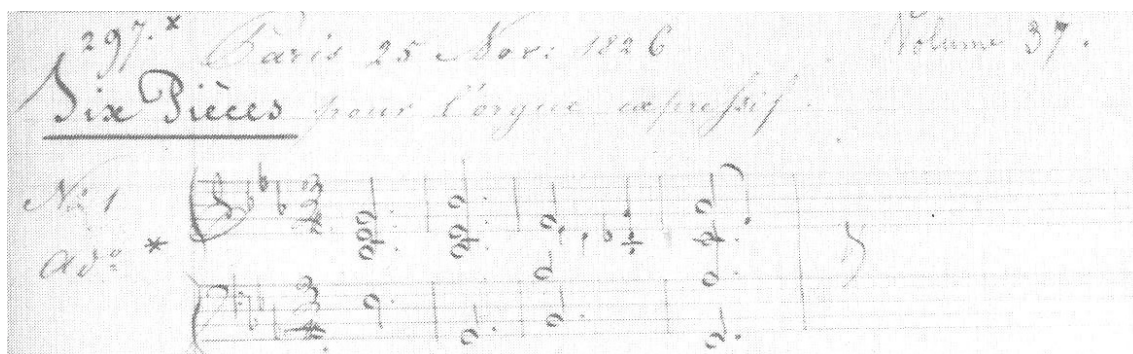 297.* Paris 25 Nov: 1826 Volume 37.
Six Pièces pour l'orgue expressif.
No. 1
Ado *
3
4
3
4